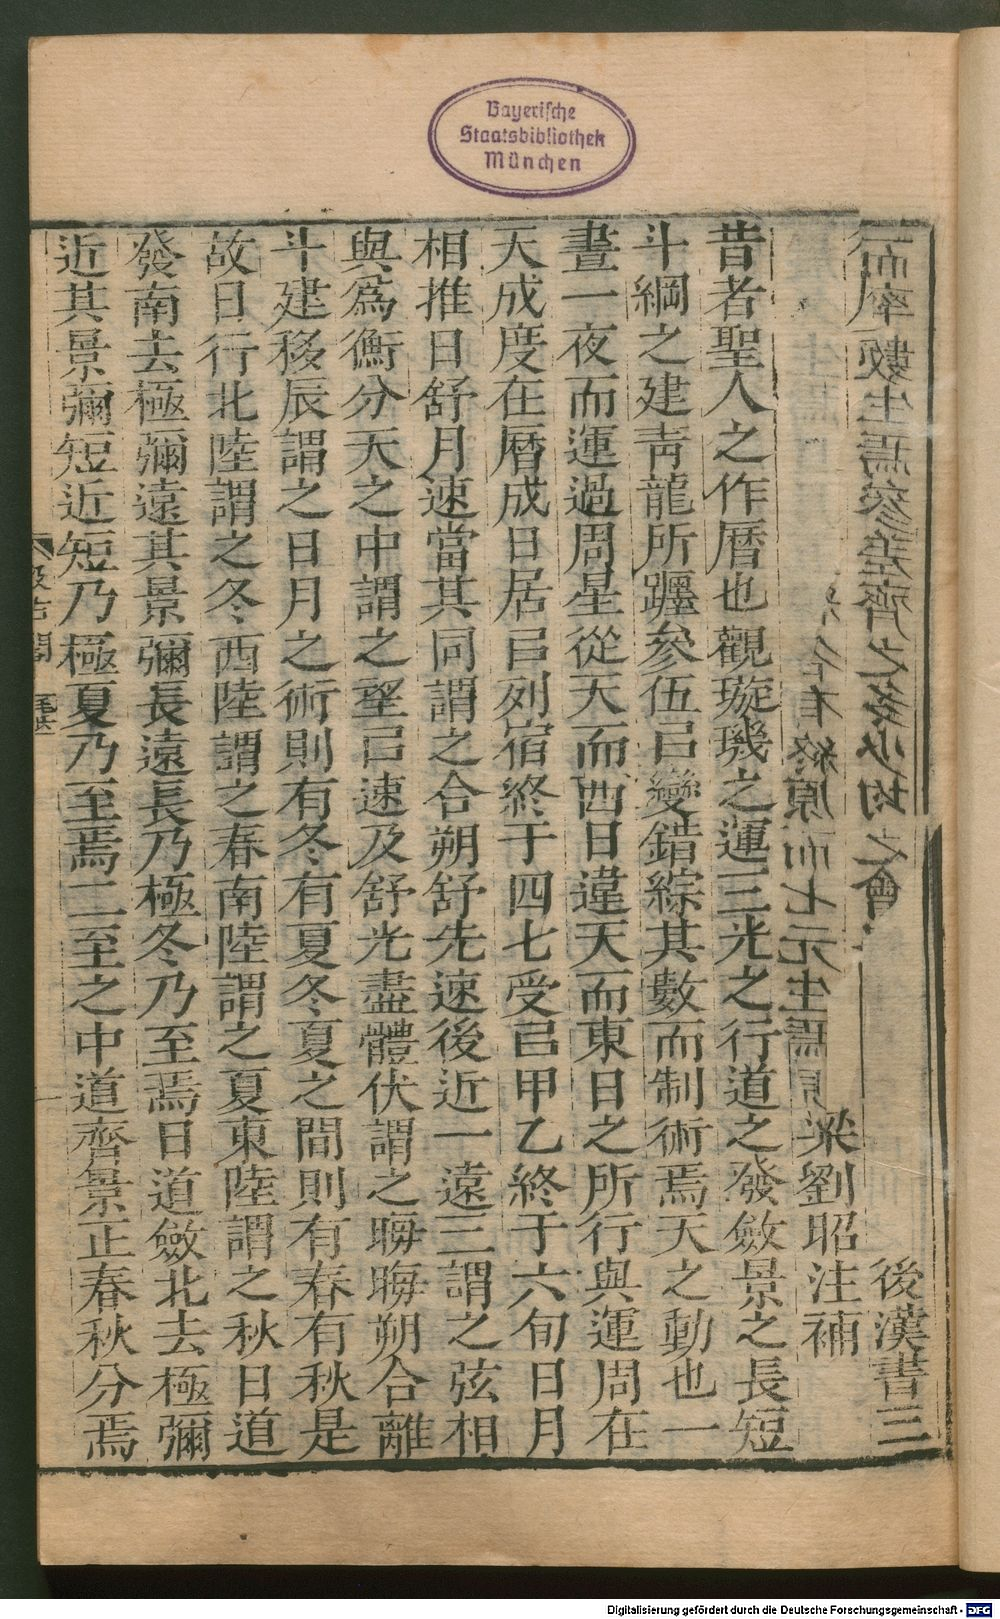 Bayerische
Staatsbibliothek
München
後漢書三
梁劉昭注補
昔者聖人之作曆也觀璇璣之運三光之行道之發斂景之長短
斗綱之建青龍所躔參伍㠯變錯綜其數而制術焉天之動也一
晝一夜而運過周星從天而西日違天而東日之所行與運周在
天成度在曆成日居㠯列宿終于四七受㠯甲乙終于六旬日月
相推日舒月速當其同謂之合朔舒先速後近一遠三謂之弦相
與爲衡分天之中謂之望㠯速及舒光盡體伏謂之晦晦朔合離
斗建移辰謂之日月之術則有冬有夏冬夏之間則有春有秋是
故日行北陸謂之冬西陸謂之春南陸謂之夏東陸謂之秋日道
發南去極彌遠其景彌長遠長乃極冬乃至焉日道斂北去極彌
近其景彌短近短乃極夏乃至焉二至之中道齊景正春秋分焉
Digitalisierung gefördert durch die Deutsche Forschungsgemeinschaft - DFG